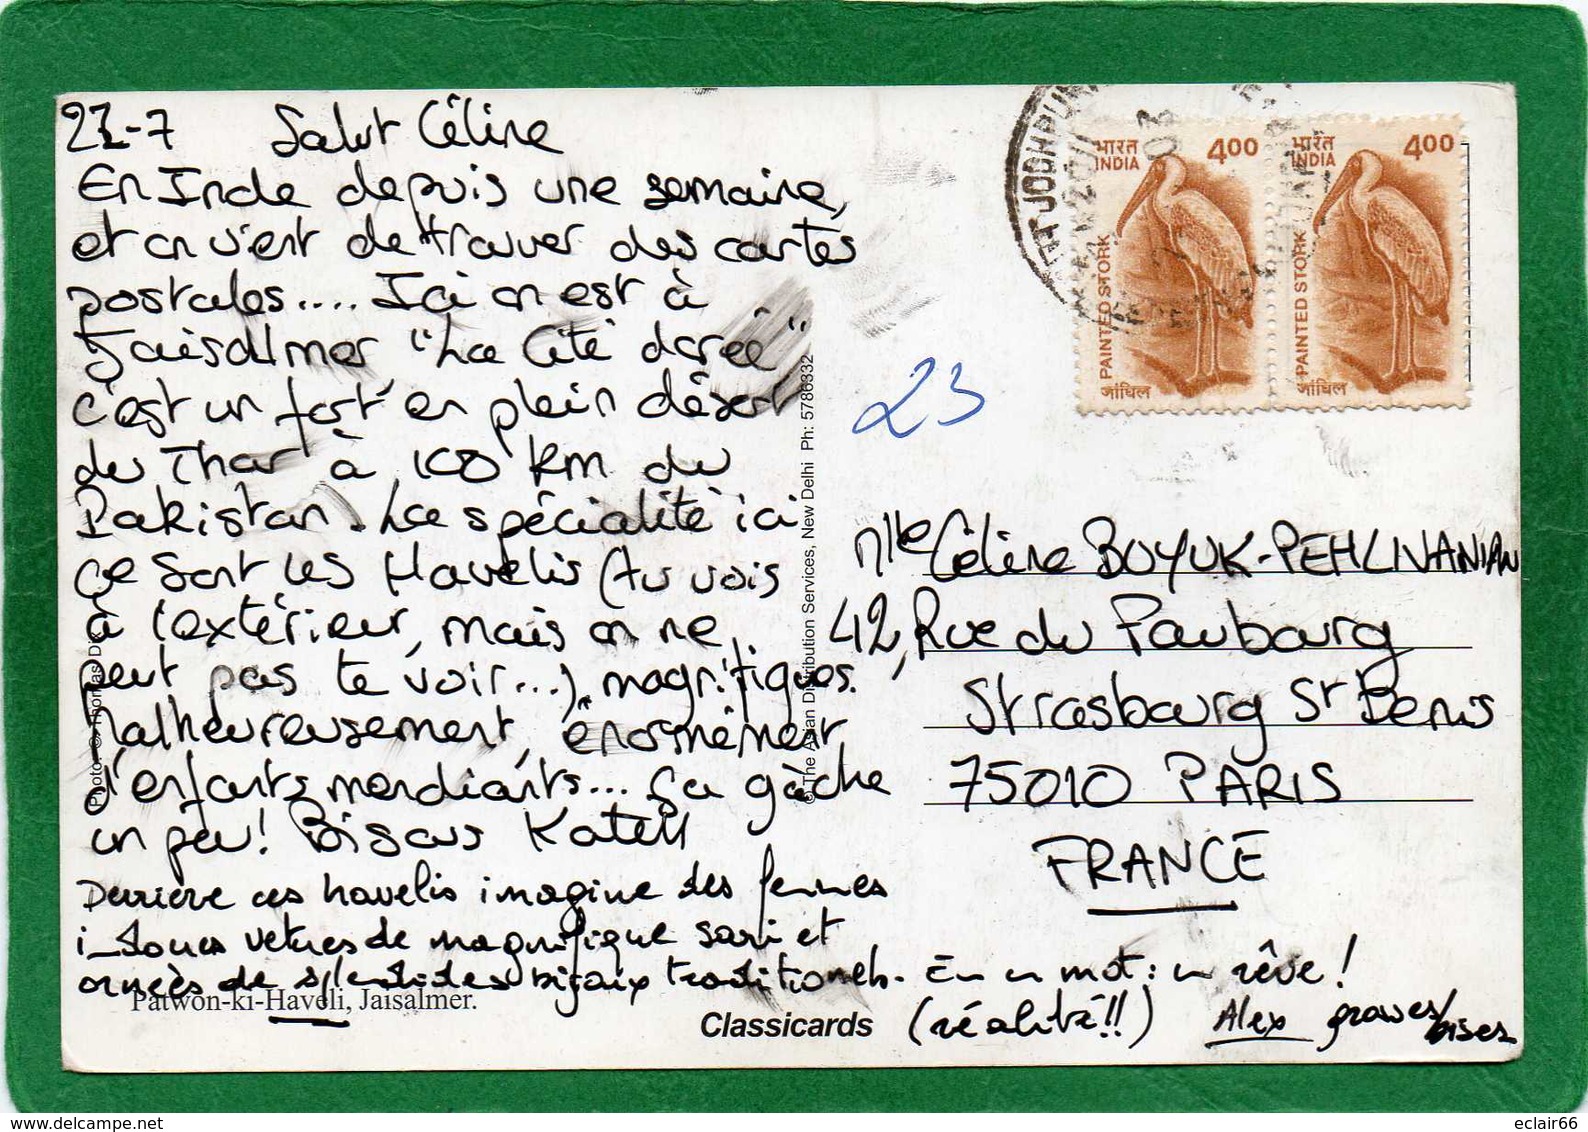 -7 Salut Céline
En Inde depuis une semaine,
et on vient de trouver des cartes
postales.... Ici on est à
Jaisalmer "La Cité dorée"
c'est un fort en plein désert
du Thar à 100 km du
Pakistan. La spécialité ici
ce sont les Havelis (tu vois
à l'extérieur, mais on ne
peut pas te voir...) magnifiques.
Malheureusement, énormément
d'enfants mendiants... ça gâche
un peu! Bisous Katell
Derrière ces havelis imagine des femmes
indoues vetues de magnifique sari et
ornées de splendides bijoux traditionels. En un mot : un rêve!
(réalité!!) Alex grosses bises
Patwon-ki-Haveli, Jaisalmer.
Classicards
Photo: © Thomas Dix
© The Asian Distribution Services, New Delhi Ph: 5786332
23
JODHPUR
भारत INDIA 400
PAINTED STORK
जांघिल
भारत INDIA 400
PAINTED STORK
जांघिल
Mlle Céline BUYUK-PEHLIVANIAN
42, Rue du Faubourg
Strasbourg St Denis
75010 PARIS
FRANCE
eclair66